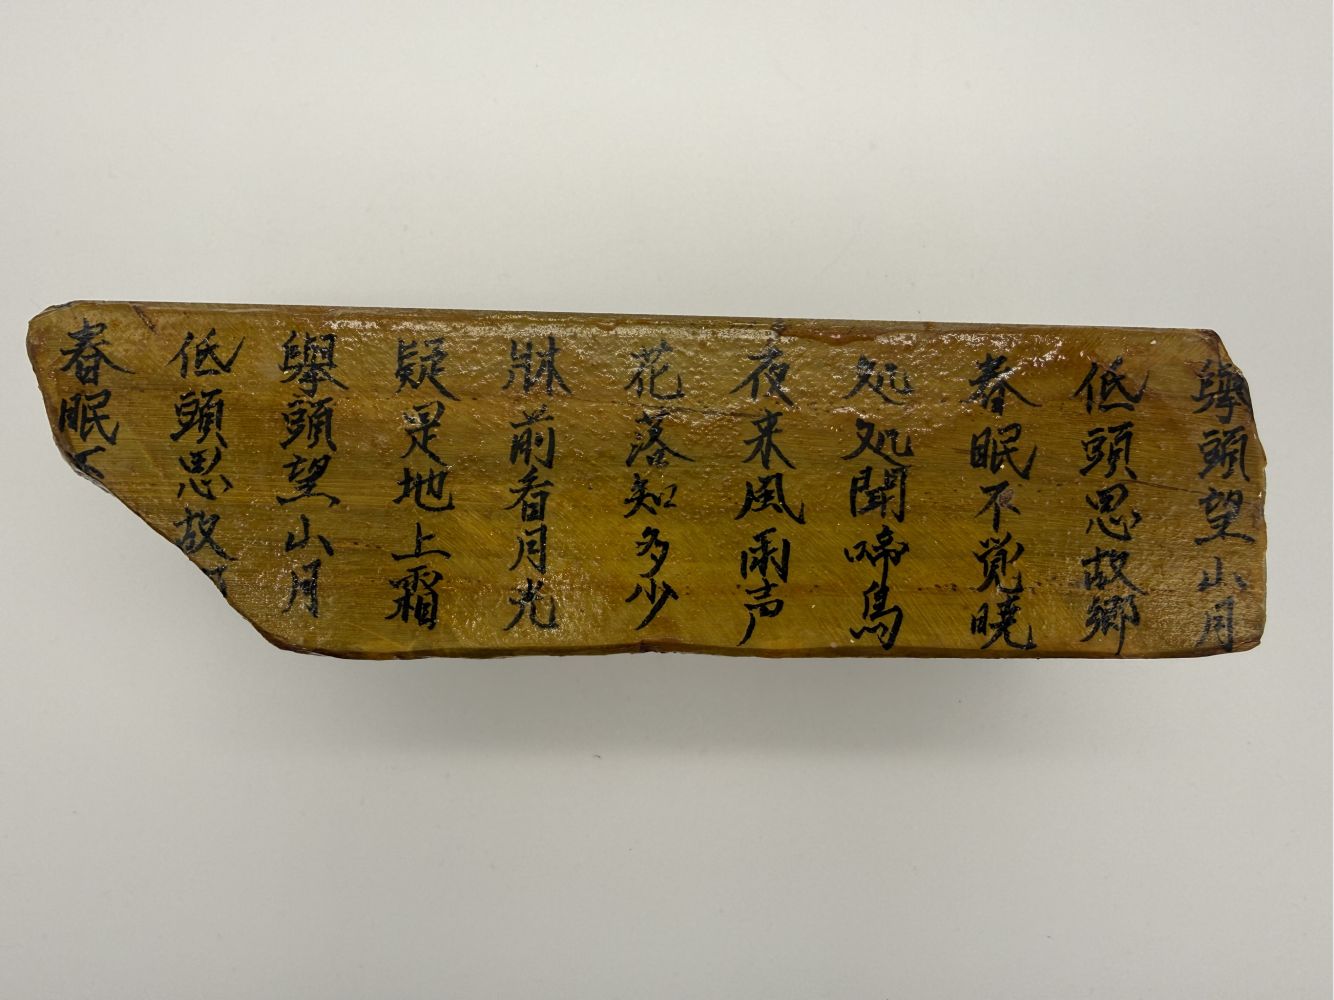 擧頭望山月
低頭思故郷
春眠不覚暁
処処聞啼鳥
夜来風雨声
花落知多少
牀前看月光
疑是地上霜
擧頭望山月
低頭思故
春眠